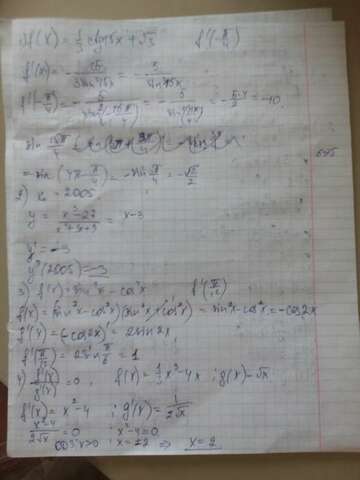 1) f(x) = 1/3 ctg 15x + √3   f'(-π/4)
f'(x) = - 15/(3sin²15x) = - 5/(sin²15x)
f'(-π/4) = - 5/(sin²(-15π/4)) = - 5/(sin² 15π/4) = - 5·2 = -10.
sin 15π/4
= sin(4π - π/4) = - sin π/4 = - √2/2
2) x₀ = 2005
y = = x-3
y' =
y'(2005) =
3) f(x) = sin⁴x - cos⁴x   f'(π/12)
f(x) = (sin²x - cos²x)(sin²x + cos²x) = sin²x - cos²x = - cos2x
f'(x) = (-cos2x)' = 2sin2x
f'(π/12) = 2sin π/6 = 1
4) f'(x)/g'(x) = 0   f(x) = 1/3 x³ - 4x ; g(x) = √x
f'(x) = x² - 4   ; g'(x) = 1/(2√x)
= 0   ; x² - 4 = 0
ОДЗ: x>0 ; x = ±2 ⇒ x = 2